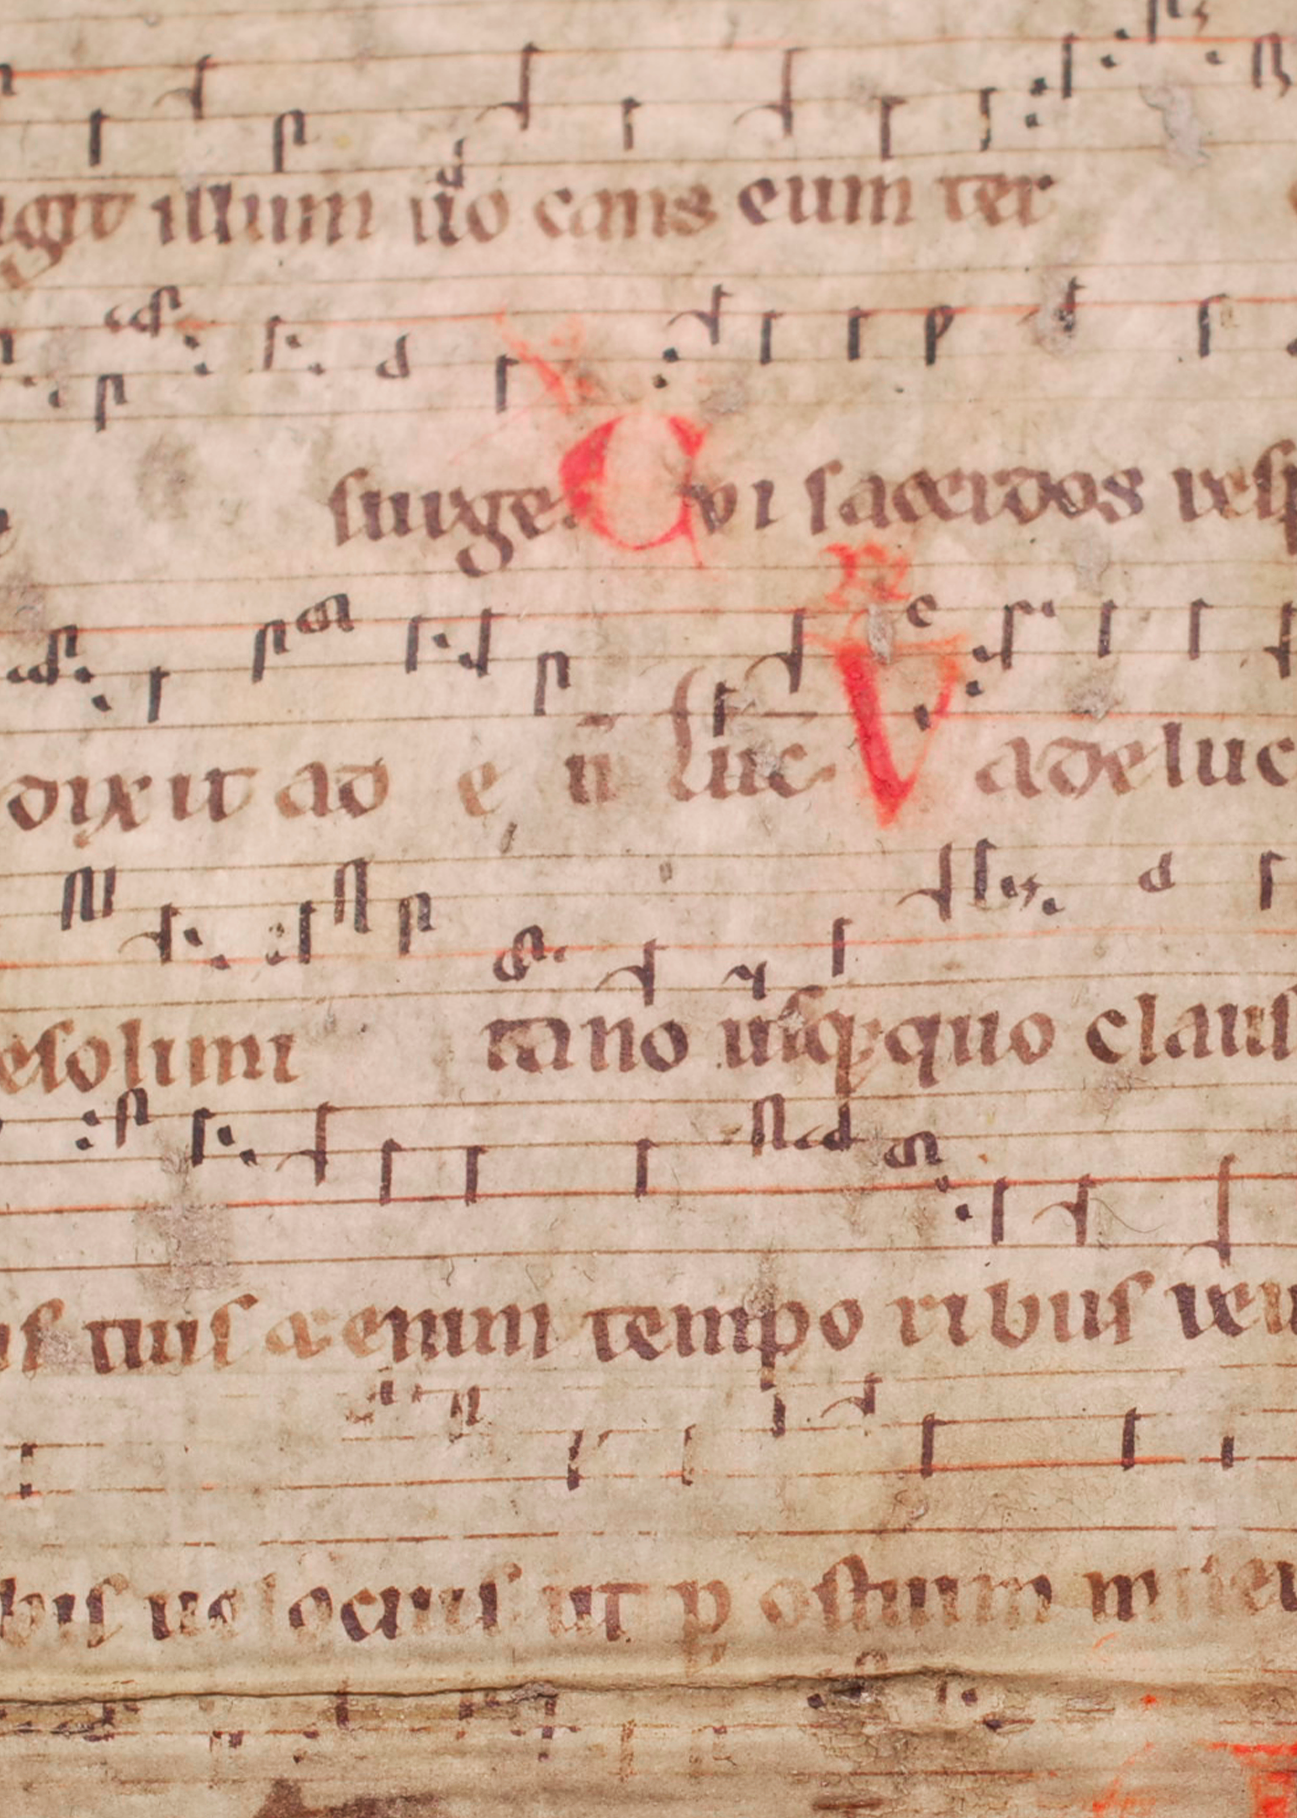 igit illum uo cans eum ter
surge. Cui sacerdos resp
dixit ad e u luc. Vade luc
esolimi tano usq; quo claus
is tuis &enim tempo ribus ueu
bis uelocius ut p ostium